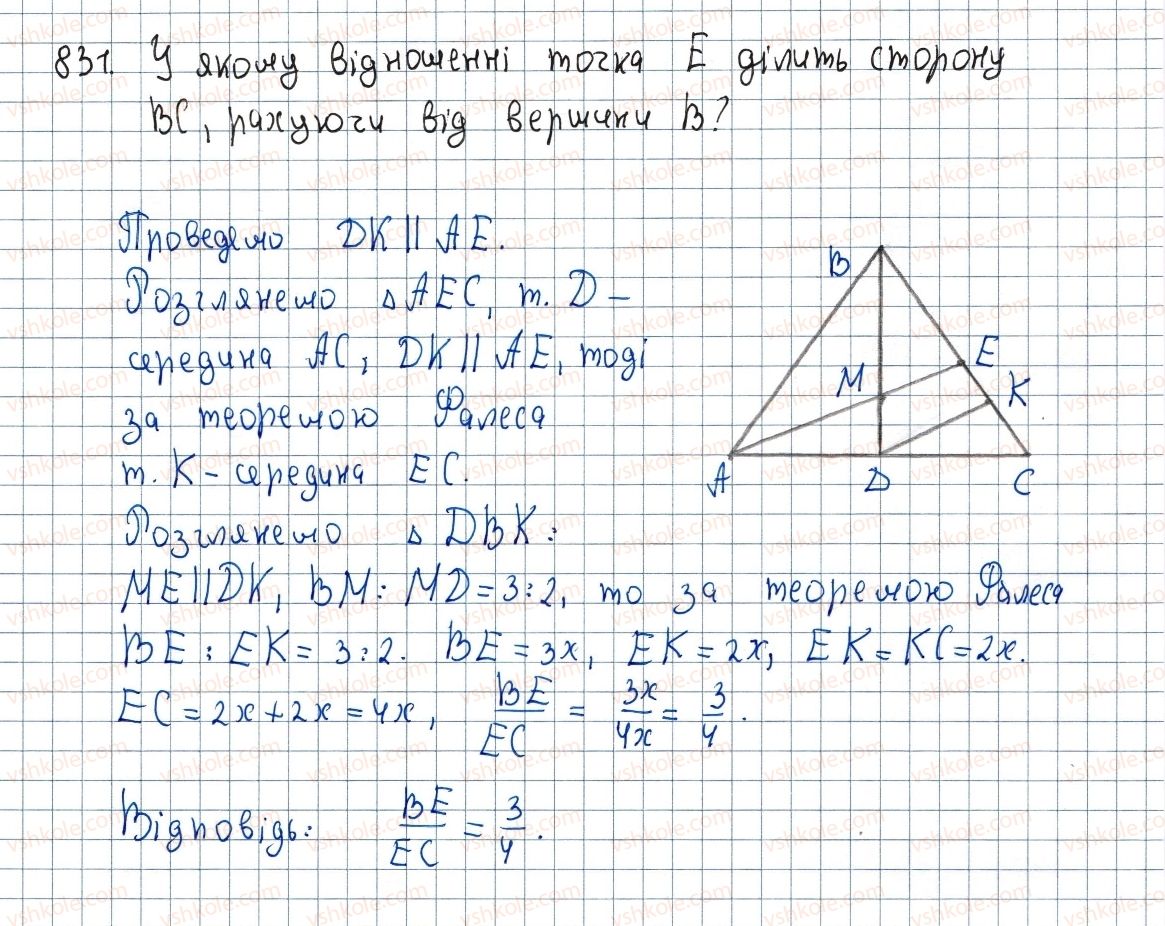 831. У якому відношенні точка E ділить сторону
BC, рахуючи від вершини B?
Проведемо DK || AE.
Розглянемо △AEC, т. D –
середина AC, DK || AE, тоді
за теоремою Фалеса
т. K – середина EC.
Розглянемо △ DBK:
ME||DK, BM : MD = 3 : 2, то за теоремою Фалеса
BE : EK = 3 : 2. BE = 3x, EK = 2x, EK = KC = 2x.
EC = 2x + 2x = 4x, BE/EC = 3x/4x = 3/4.
Відповідь: BE/EC = 3/4.
B
E
M
K
A
D
C
vshkole.com